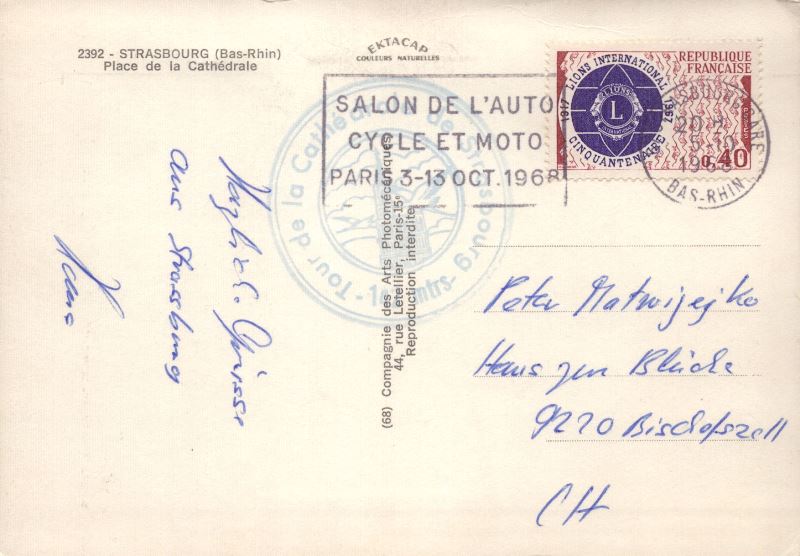 2392 - STRASBOURG (Bas-Rhin)
Place de la Cathédrale
EKTACAP
COULEURS NATURELLES
SALON DE L'AUTO
CYCLE ET MOTO
PARIS 3-13 OCT. 1968
1917 LIONS INTERNATIONAL 1967
CINQUANTENAIRE
LIONS
L
INTERNATIONAL
REPUBLIQUE
FRANÇAISE
0,40
GARE
20 H
5-10
1968
BAS-RHIN
Tour de la Cathédrale de Strasbourg
(68) Compagnie des Arts Photomécaniques
44, rue Letellier, Paris-15e
Reproduction interdite
Herzliche Grüsse
aus Strassburg
Hans
Peter Matwijejko
Haus zur Blücke
9220 Bischofszell
CH